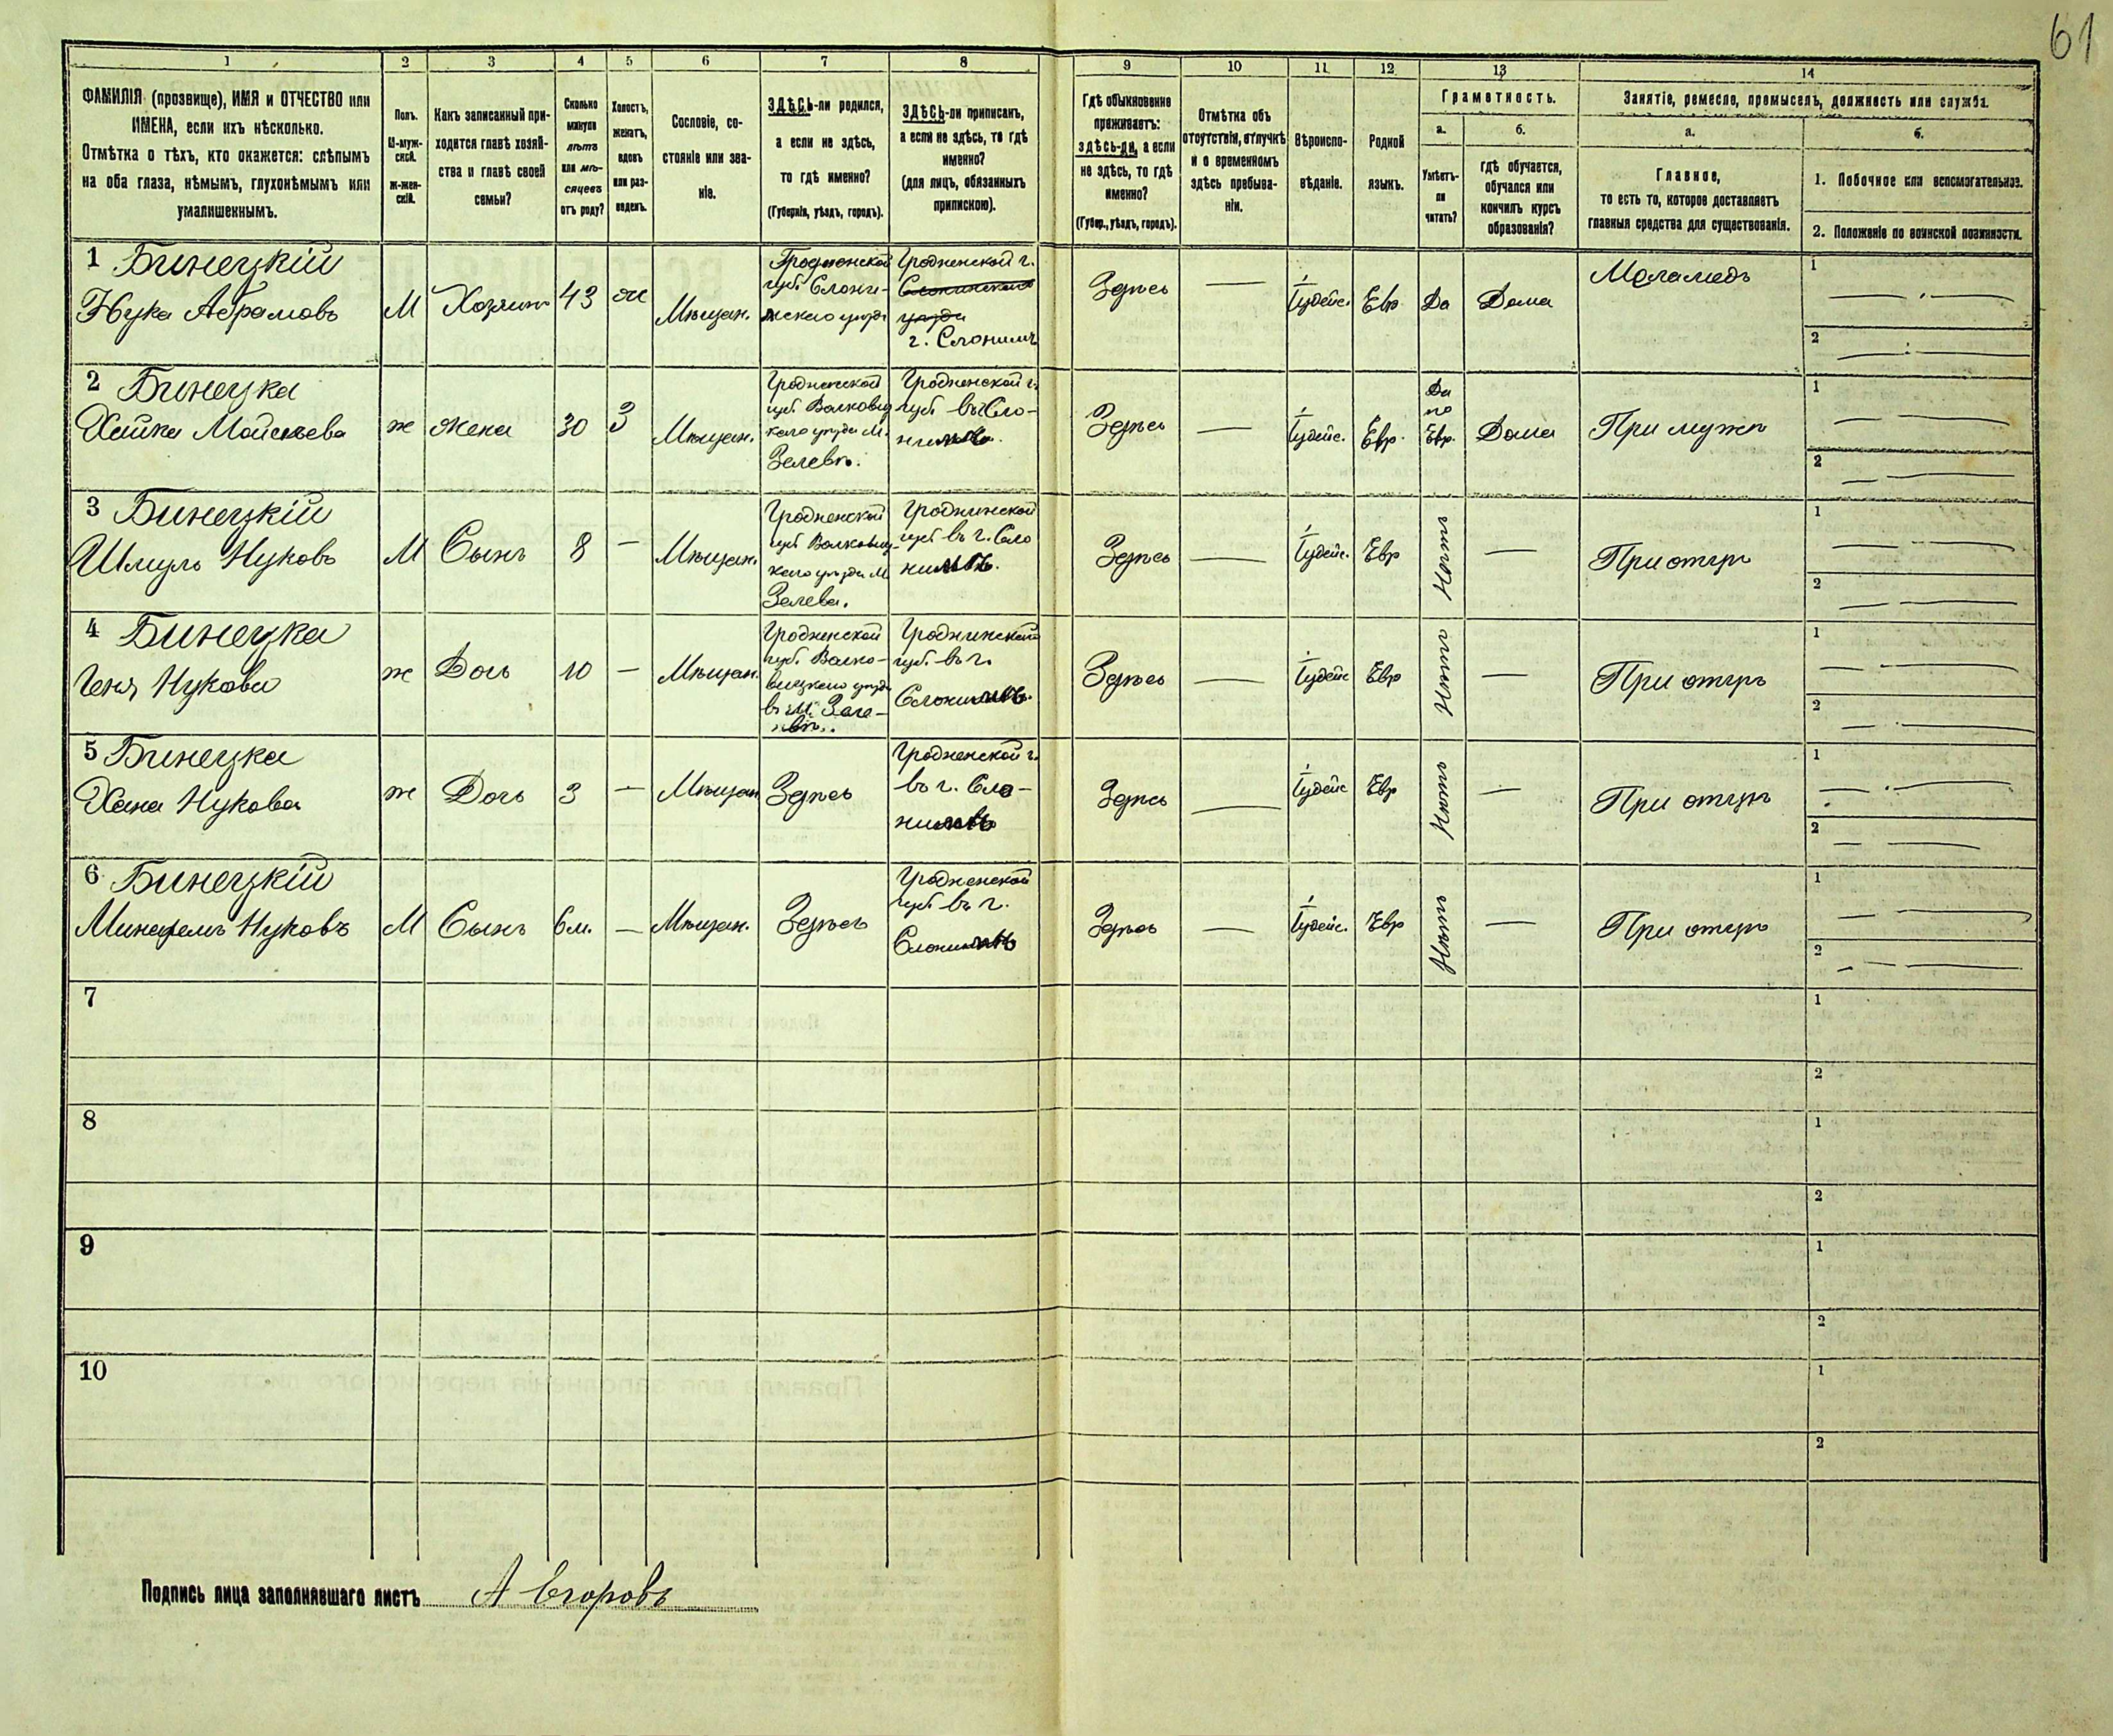 61
1 2 3 4 5 6 7 8 9 10 11 12 13 14
ФАМИЛІЯ (прозвище), ИМЯ и ОТЧЕСТВО или
ИМЕНА, если ихъ нѣсколько.
Отмѣтка о тѣхъ, кто окажется: слѣпымъ
на оба глаза, нѣмымъ, глухонѣмымъ или
умалишеннымъ.
Полъ.
М-муж-
ской.
ж-жен-
скій.
Какъ записанный при-
ходится главѣ хозяй-
ства и главѣ своей
семьи?
Сколько
минуло
лѣтъ
или мѣ-
сяцевъ
отъ роду?
Холостъ,
женатъ,
вдовъ
или раз-
веденъ.
Сословіе, со-
стояніе или зва-
ніе.
ЗДѢСЬ-ли родился,
а если не здѣсь,
то гдѣ именно?
(Губернія, уѣздъ, городъ).
ЗДѢСЬ-ли приписанъ,
а если не здѣсь, то гдѣ
именно?
(для лицъ, обязанныхъ
припискою).
Гдѣ обыкновенно
проживаетъ:
здѣсь-ли, а если
не здѣсь, то гдѣ
именно?
(Губер., уѣздъ, городъ).
Отмѣтка объ
отсутствіи, отлучкѣ
и о временномъ
здѣсь пребыва-
ніи.
Вѣроиспо-
вѣданіе.
Родной
языкъ.
Грамотность.
а.
Умѣетъ-
ли
читать?
б.
гдѣ обучается,
обучался или
кончилъ курсъ
образованія?
Занятіе, ремесло, промыселъ, должность или служба.
а.
Главное,
то есть то, которое доставляетъ
главныя средства для существованія.
б.
1. Побочное или вспомогательное.
2. Положеніе по воинской повинности.
1 Бинецкій
Нука Абрамовъ
М
Хозяинъ
43
ж
Мѣщан.
Гродненской
губ. Слони-
мскаго уезда
Гродненской г.
Слонимскаго
уезда
г. Слонимъ
Здѣсь
—
Іудейс.
Евр
Да
Дома
Меламедъ
1
2
2 Бинецка
Хайка Мойсѣева
ж
жена
30
З
Мѣщан.
Гродненской
губ. Волковыц
каго уезда М.
Зелевѣ.
Гродненской г.
губ. въ Сло-
нимѣ.
Здѣсь
—
Іудейс.
Евр.
Да
по
Евр.
Дома
При мужѣ
1
2
3 Бинецкій
Шмуль Нуковъ
М
Сынъ
8
—
Мѣщан.
Гродненской
губ Волковыц-
каго уезда М
Зелева.
Гроднинской
губ въ г. Сло
нимѣ.
Здѣсь
—
Іудейс.
Евр
Нѣтъ
—
При отцѣ
1
2
4 Бинецка
Геня Нукова
ж
Дочь
10
—
Мѣщан.
Гродненской
губ. Волко-
выцкаго уезда
въ м. Зеле-
вѣ.
Гроднинской
губ. въ г.
Слонимѣ.
Здѣсь
—
Іудейс
Евр
Нѣтъ
—
При отцѣ
1
2
5 Бинецка
Хана Нукова
ж
Дочь
3
—
Мѣщан
Здѣсь
Гродненской г.
въ г. Сло-
нимѣ
Здѣсь
—
Іудейс
Евр
Нѣтъ
—
При отцѣ
1
2
6 Бинецкій
Минахемъ Нуковъ
М
Сынъ
6м.
—
Мѣщан.
Здѣсь
Гродненской
губ. въ г.
Слонимѣ
Здѣсь
—
Іудейс.
Евр
Нѣтъ
—
При отцѣ
1
2
7
1
2
8
1
2
9
1
2
10
1
2
Подпись лица заполнявшаго листъ А Егоровъ